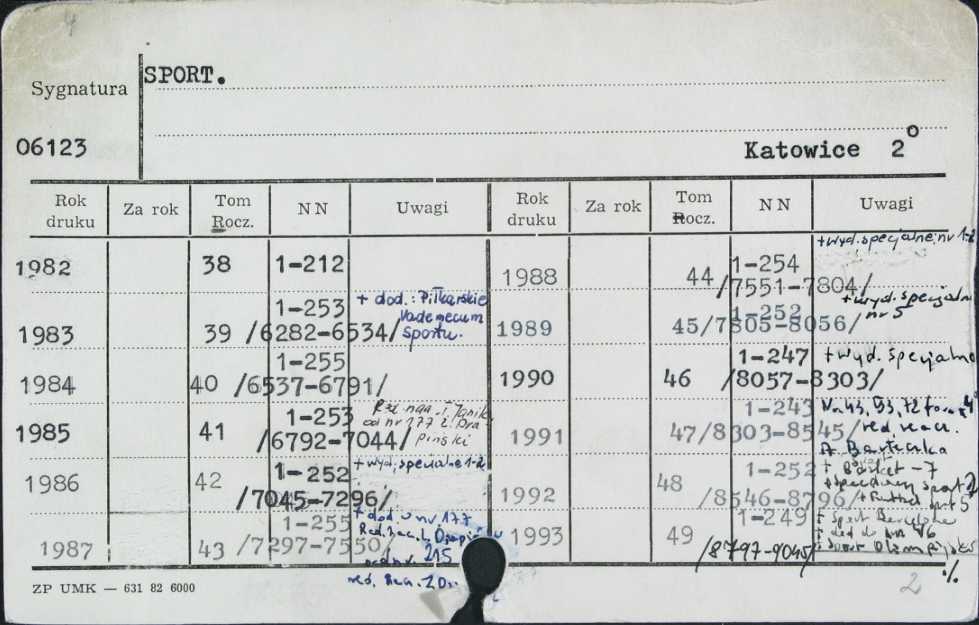 4
SPORT.
Sygnatura
06123
Katowice 2°
Rok druku Za rok Tom Rocz. NN Uwagi
Rok druku Za rok Tom Rocz. NN Uwagi
1982 38 1-212
1983 39 1-253 /6282-6534/ + dod.: Piłkarskie
Vademecum
sportu.
1984 40 1-255 /6537-6791/
1985 41 1-253 /6792-7044/
od nr 177
1986 42 1-252 /7045-7296/ + wyd. specjalne 1-2
1987 43 1-255 /7297-7550/ + dod. nr 177
215
1988 44 1-254 /7551-7804/ + wyd. specjalne nr 1-2
1989 45 1-252 /7805-8056/ + wyd. specjaln
nr 5
1990 46 1-247 /8057-8303/ + wyd. specjalne
1991 47 1-243 /8303-8545/ Nr 43, 53, 72
1992 48 1-252 /8546-8796/ + Basket - 7
sport 2
nr 5
1993 49 1-249 /8797-9045/ + Sport
ZP UMK — 631 82 6000
2